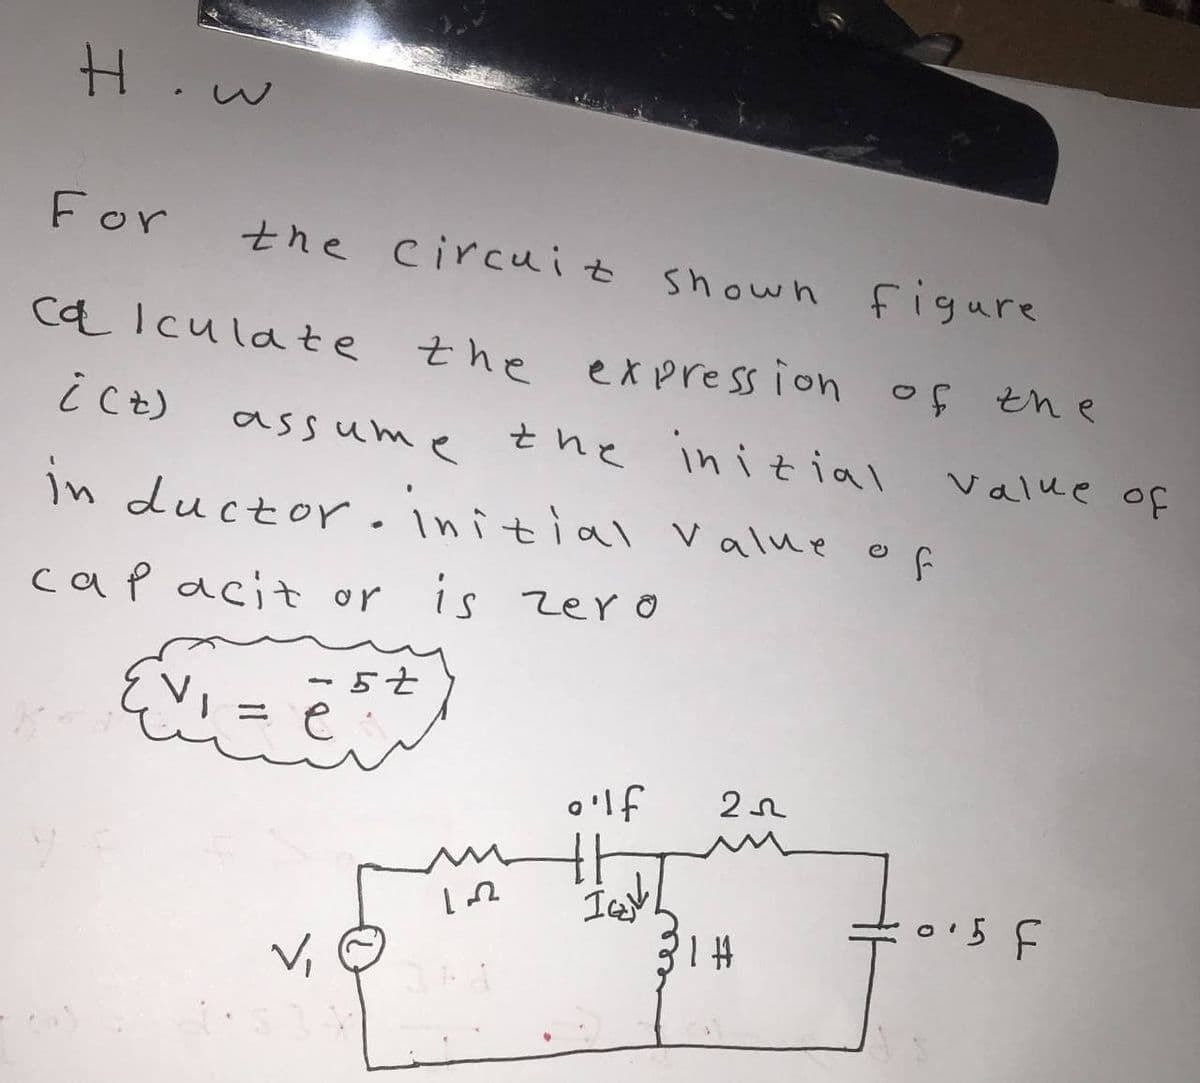 H.w
For the circuit shown figure
calculate the expression of the
i(t) assume the initial value of
inductor. initial value of
capacitor is zero
V₁ = e^-5t
0.1f 2Ω
1Ω I(t)
V₁ 1H 0.5 F